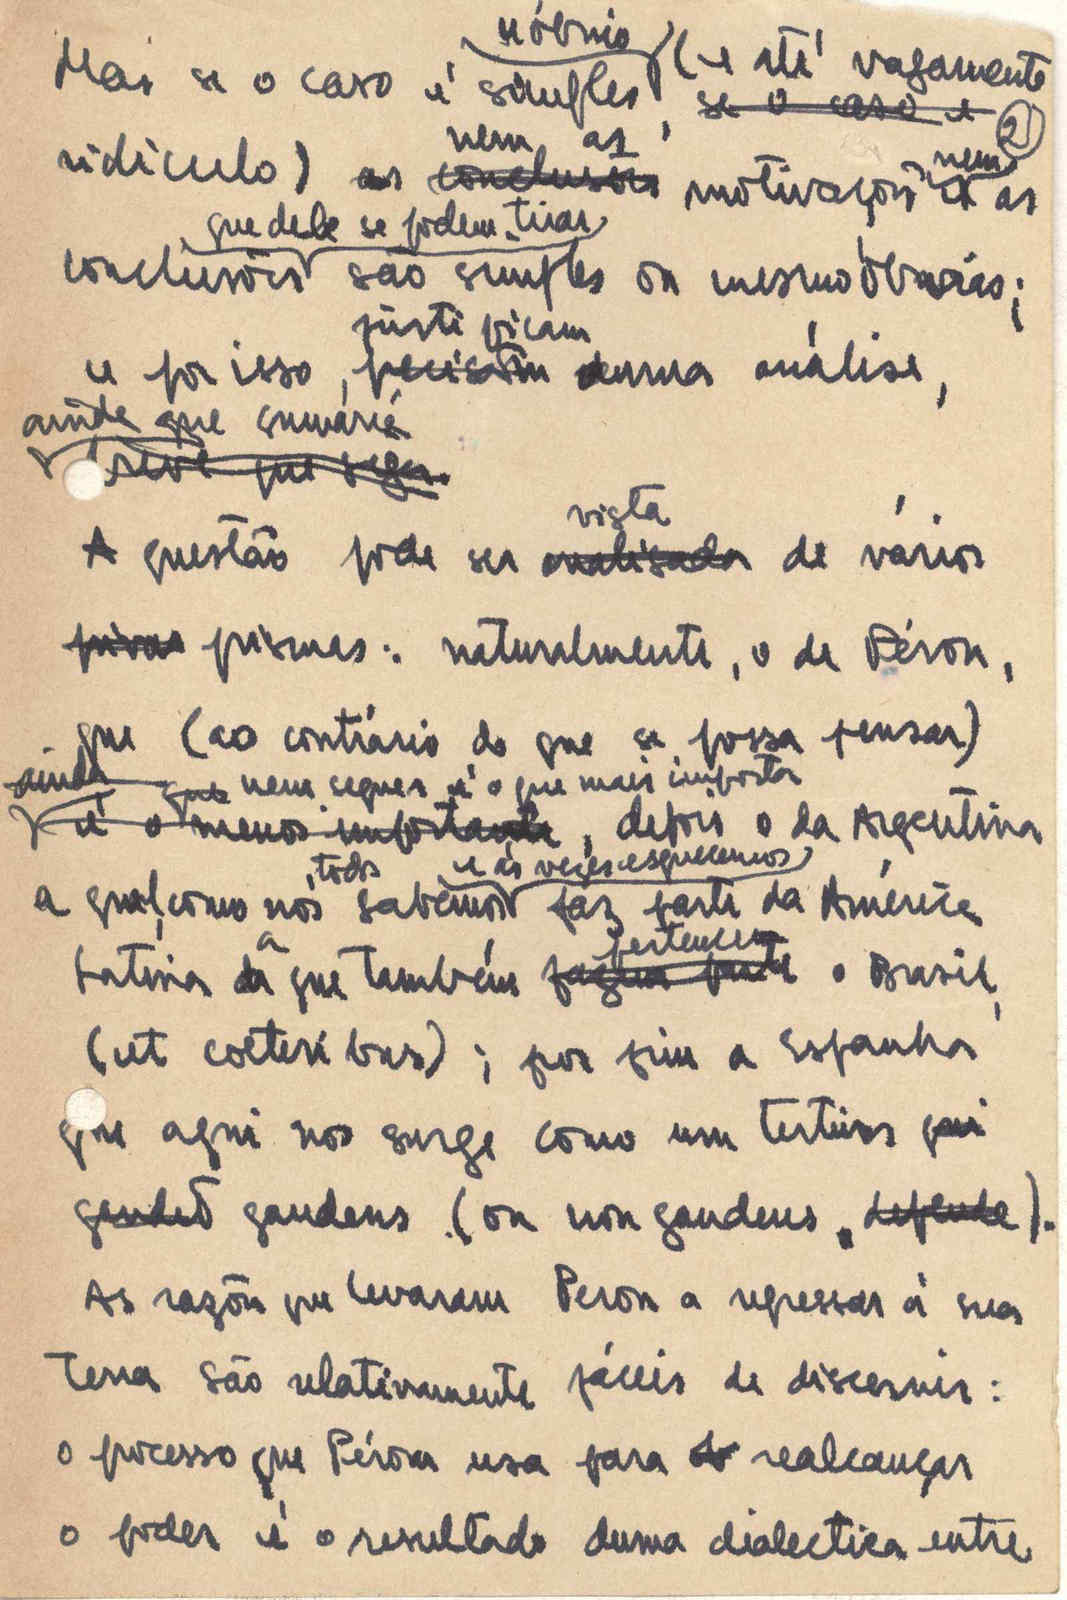 sóbrio
Mas se o caso é simples (e até vagamente
se o caso e
2
nem as nem
ridículo) as conclusões motivações as
que dele se podem tirar
conclusões são simples ou mesmo óbvias;
justificam
e por isso, precisam duma análise,
ainda que sumária
breve que seja.
vista
A questão pode ser analisada de vários
prismas: naturalmente, o de Péron,
que (ao contrário do que se possa pensar)
ainda que nem sequer é o que mais importa
é o menos importante, depois o da Argentina
todos e às vezes esquecemos
a qual, como nós sabemos faz parte da América
a pertencem
Latina da que também fazem parte o Brasil,
(et coeteri bus); por fim a Espanha
que aqui nos surge como um tertius qui
gaudet gaudens (ou non gaudens, depende).
As razões que levaram Peron a regressar à sua
terra são relativamente fáceis de discernir:
o processo que Péron usa para realcançar
o poder é o resultado duma dialectica entre